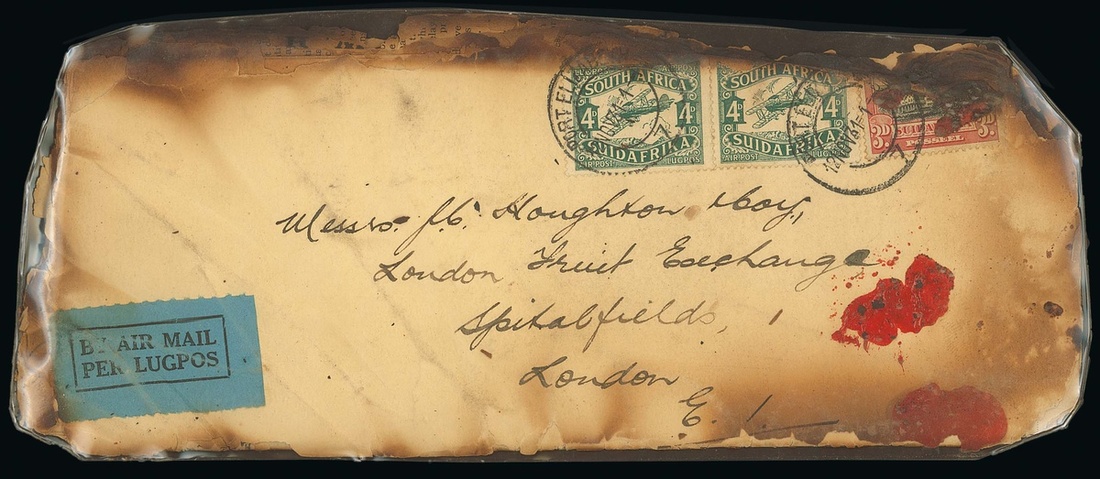 SOUTH AFRICA
4D 4D
SUIDAFRIKA
AIR POST LUGPOS
SOUTH AFRICA
4D 4D
SUIDAFRIKA
AIR POST LUGPOS
3D 3D
Messrs. J.C. Houghton & Coy,
London Fruit Exchange
Spitalfields,
London
E. 1.
BY AIR MAIL
PER LUGPOS